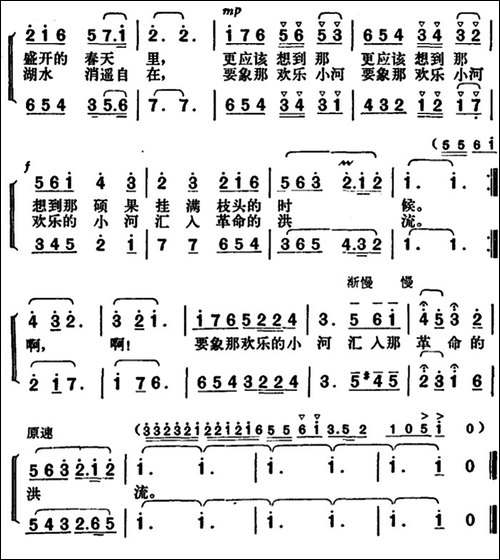 mp
2 1 6 5 7. 1 | 2. 2. | 1 7 6 5 6 5 3 | 6 5 4 3 4 3 2 |
盛开的 春天 里, 更应该 想到 那 更应该 想到 那
湖水 消遥自 在, 要象那 欢乐 小河 要象那 欢乐 小河
6 5 4 3 5. 6 | 7. 7. | 6 5 4 3 4 3 1 | 4 3 2 1 2 1 7 |
( 5 5 6 i
f
5 6 i 4 3 | 2 3 2 1 6 | 5 6 3 2. 1 2 | i. i. :
想到那 硕 果 挂 满 枝头的 时 候。
欢乐的 小 河 汇 入 革命的 洪 流。
3 4 5 2 i | 7 7 6 5 4 | 3 6 5 4. 3 2 | 1. 1. :
渐慢 慢
4 3 2. | 3 2 1. | i 7 6 5 2 2 4 | 3. 5 6 i | 4 5 3 2
啊, 啊! 要象那欢乐的小 河 汇 入那 革 命的
2 i 7. | i 7 6. | 6 5 4 3 2 2 4 | 3. 5 #4 5 | 2 3 1 6
原速 ( 3 3 2 3 2 1 2 2 1 2 1 6 5 5 6 i 3. 5 2 1 0 5 i 0 )
5 6 3 2. 1 2 | i. i. | i. i. | i. i. | i. i 0
洪 流。
5 4 3 2. 6 5 | i. i. | i. i. | i. i. | i. i 0